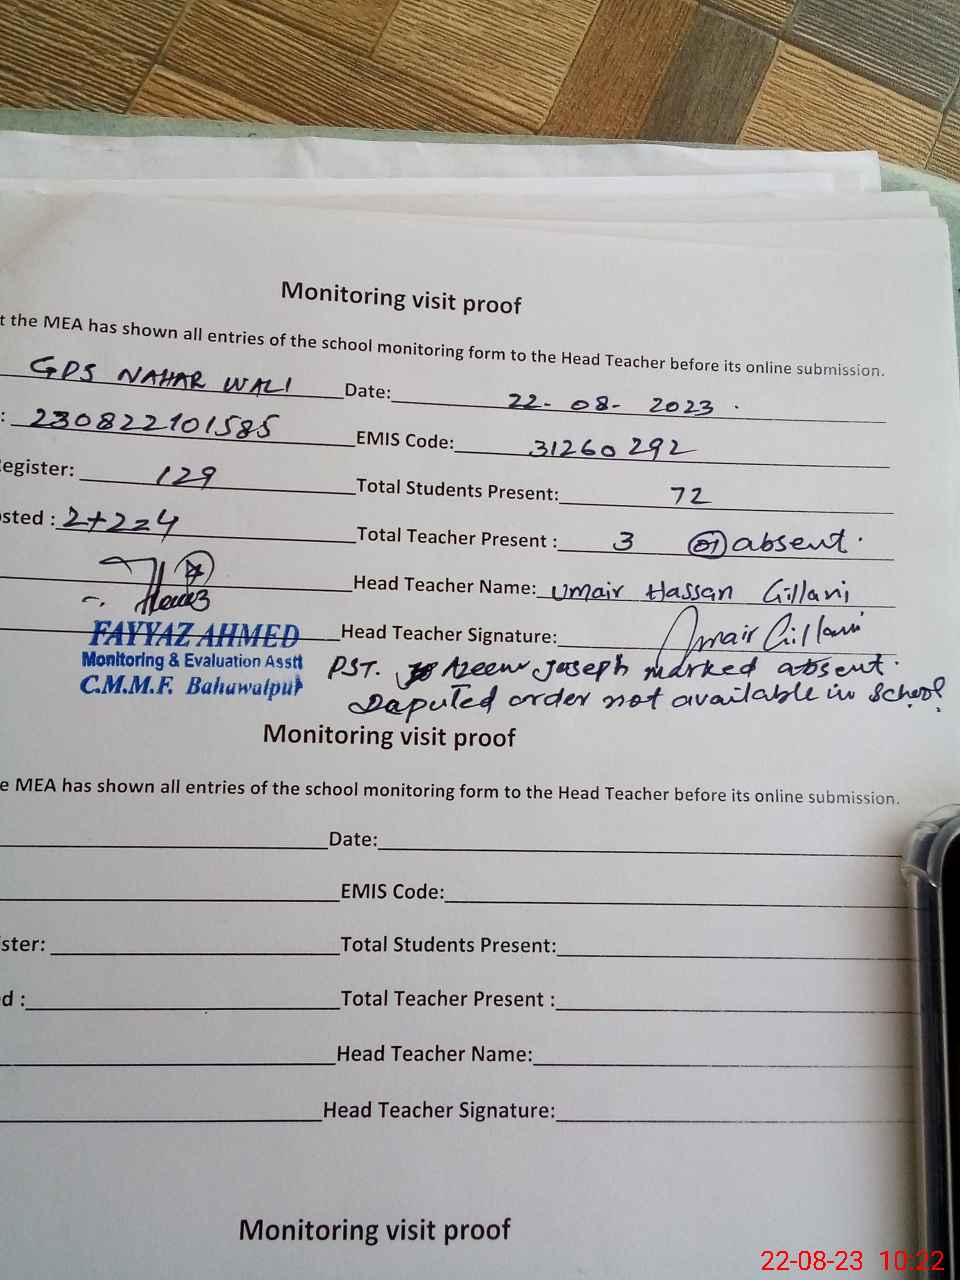 Monitoring visit proof
t the MEA has shown all entries of the school monitoring form to the Head Teacher before its online submission.
GPS NAHAR WALI Date: 22-08-2023.
: 230822101585 EMIS Code: 31260292
egister: 129 Total Students Present: 72
sted : 2+2=4 Total Teacher Present : 3 01 absent.
Head Teacher Name: Umair Hassan Gillani
Head Teacher Signature: Umair Gillani
FAYYAZ AHMED
Monitoring & Evaluation Asstt
C.M.M.F. Bahawalpur
PST. Azeem Joseph marked absent.
Daputed order not available in School
Monitoring visit proof
e MEA has shown all entries of the school monitoring form to the Head Teacher before its online submission.
Date:
EMIS Code:
ster: Total Students Present:
d : Total Teacher Present :
Head Teacher Name:
Head Teacher Signature:
Monitoring visit proof
22-08-23 10:22